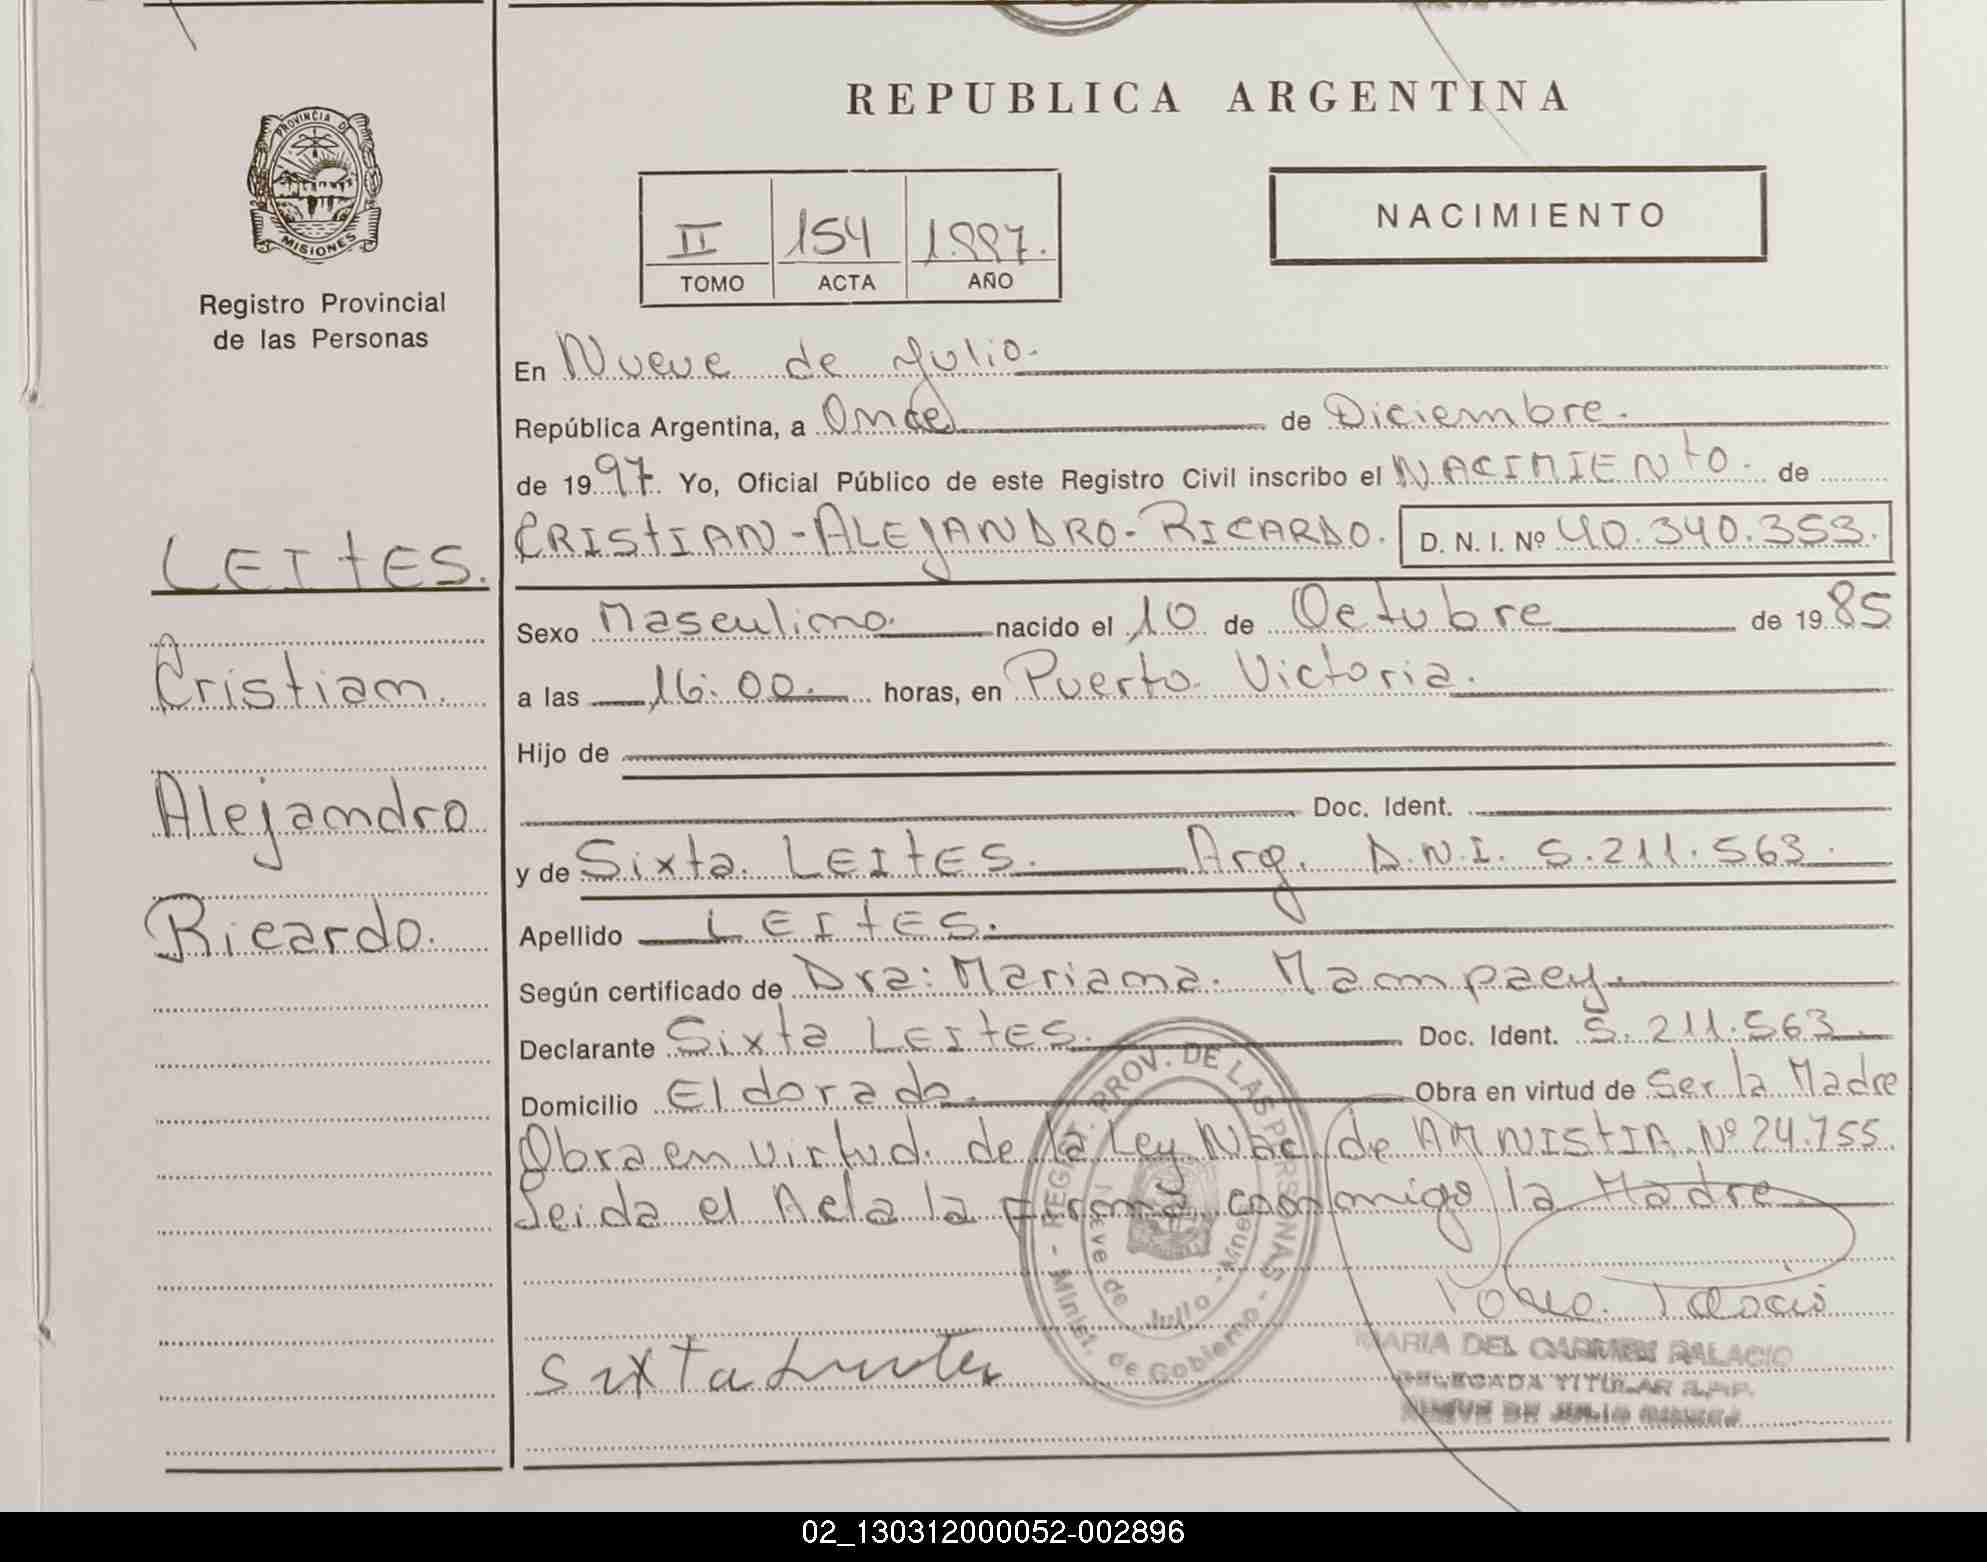 REPUBLICA ARGENTINA
PROVINCIA DE
MISIONES
Registro Provincial
de las Personas
II 154 1.997.
TOMO ACTA AÑO
NACIMIENTO
En Nueve de Julio.
República Argentina, a Once de Diciembre.
de 1997. Yo, Oficial Público de este Registro Civil inscribo el NACIMIENtO. de
CRIStIAN-ALEJANDRO-RICARDO. D. N. I. Nº 40.340.353.
LEItES.
Cristian.
Alejandro
Ricardo.
Sexo Masculino. nacido el 10 de Octubre de 1985
a las 16:00. horas, en Puerto Victoria.
Hijo de
Doc. Ident.
y de Sixta. LEItES. Arg. D.N.I. 5.211.563.
Apellido LEItES.
Según certificado de Dra: Mariana. Mampaey.
Declarante Sixta LEItES. Doc. Ident. 5.211.563.
Domicilio Eldorado. Obra en virtud de Ser la Madre
Obra en virtud. de la Ley Nac de AMNIStIA Nº 24.755.
Leida el Acta la firma conmigo la Madre
REGIST. PROV. DE LAS PERSONAS
Minist. de Gobierno
Nueve de Julio - Mnes
Sixta Leites
MARIA DEL CARMEN PALACIO
DELEGADA TITULAR R.P.P.
NUEVE DE JULIO
02_130312000052-002896